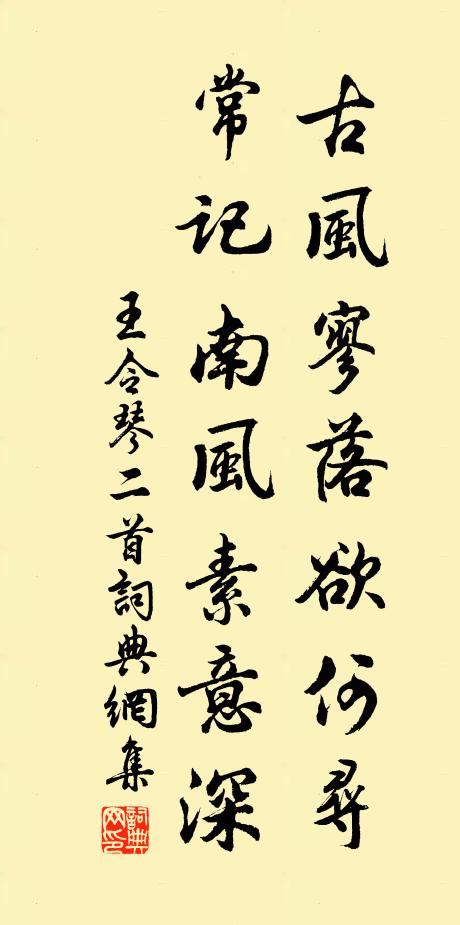 古風寥落欲何尋
常記南風素意深
王令琴二首詞典網集
詞典网印